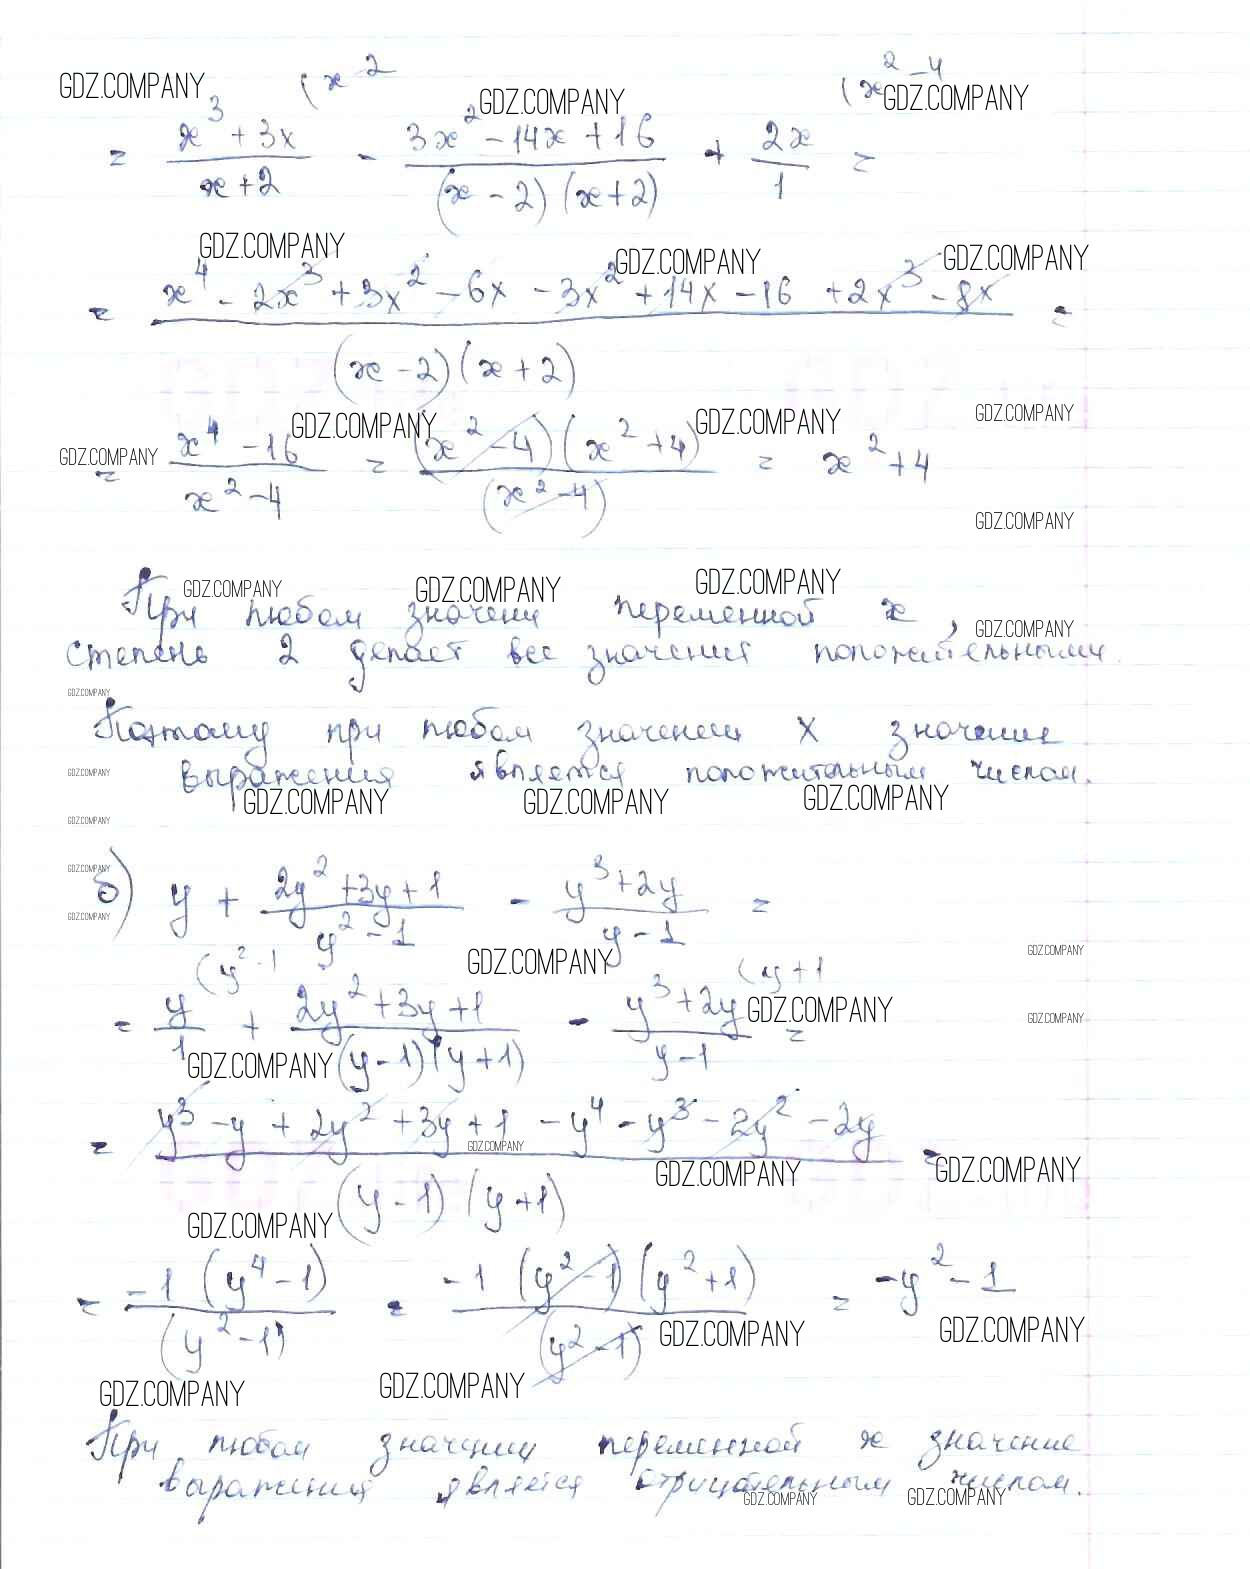 GDZ.COMPANY (x-2 GDZ.COMPANY (x²-4 GDZ.COMPANY
= (x³+3x)/(x+2) - (3x²-14x+16)/((x-2)(x+2)) + 2x/1 =
GDZ.COMPANY GDZ.COMPANY GDZ.COMPANY
= (x⁴-2x³+3x²-6x-3x²+14x-16+2x³-8x)/((x-2)(x+2)) =
GDZ.COMPANY GDZ.COMPANY GDZ.COMPANY
GDZ.COMPANY
= (x⁴-16)/(x²-4) = ((x²-4)(x²+4))/((x²-4)) = x²+4
GDZ.COMPANY
GDZ.COMPANY GDZ.COMPANY GDZ.COMPANY
При любом значени переменной x,
GDZ.COMPANY
степень 2 делает все значения положительными.
GDZ.COMPANY
Поэтому при любом значении x значение
GDZ.COMPANY
выражения является положительным числом.
GDZ.COMPANY GDZ.COMPANY GDZ.COMPANY
GDZ.COMPANY
GDZ.COMPANY
б) y + (2y²+3y+1)/(y²-1) - (y³+2y)/(y-1) =
GDZ.COMPANY
GDZ.COMPANY GDZ.COMPANY
(y²-1 (y+1
= y/1 + (2y²+3y+1)/((y-1)(y+1)) - (y³+2y)/(y-1) =
GDZ.COMPANY GDZ.COMPANY
GDZ.COMPANY
= (y³-y+2y²+3y+1-y⁴-y³-2y²-2y)/((y-1)(y+1)) =
GDZ.COMPANY
GDZ.COMPANY GDZ.COMPANY
GDZ.COMPANY
= (-1(y⁴-1))/((y²-1)) = (-1(y²-1)(y²+1))/((y²-1)) = -y²-1
GDZ.COMPANY GDZ.COMPANY
GDZ.COMPANY GDZ.COMPANY
При любом значении переменной x значение
выражения является отрицательным числом.
GDZ.COMPANY GDZ.COMPANY